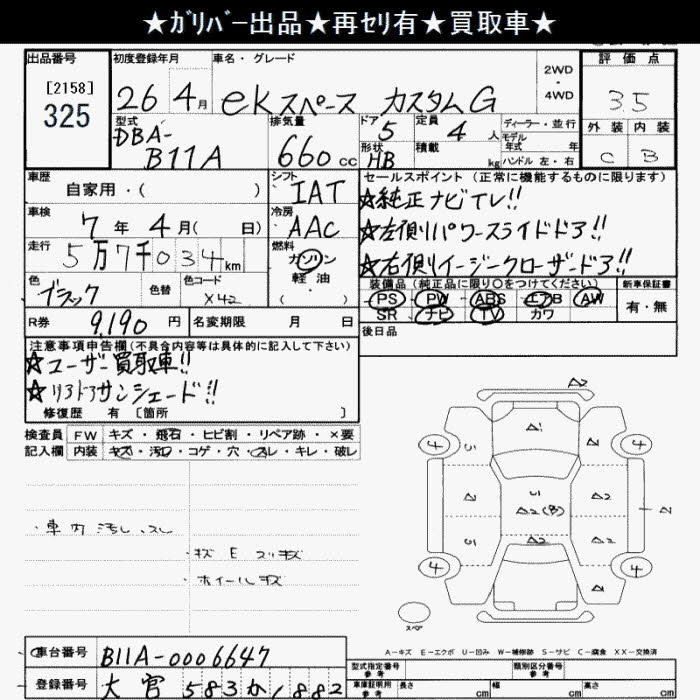 ★ガリバー出品★再セリ有★買取車★
出品番号
[2158]
325
初度登録年月
26年4月
車名・グレード
ekスペース カスタムG
2WD
・
4WD
評価点
3.5
外装 内装
C B
型式
DBA-
B11A
排気量
660cc
ドア
5
形状
HB
定員
4人
積載
kg
ディーラー・並行
モデル
年式 年
ハンドル 左・右
車歴
自家用・( )
シフト
IAT
車検
7年4月( 日)
冷房
AAC
走行
5万7千034km
燃料
ガソリン
軽油
・
( )
色
ブラック
色替
色コード
X42
R券
9,190円
名変期限 月 日
セールスポイント(正常に機能するものに限ります)
★純正ナビTV!!
★左側パワースライドドア!!
★右側イージークローザードア!!
装備品(純正品に限り○をつけてください)
PS・PW・ABS・エアB・AW
SR ナビ TV カワ
新車保証書
有・無
後日品
注意事項申告欄(不具合内容等は具体的に記入して下さい)
★ユーザー買取車!!
★リアドアサンシェード!!
修復歴 有 [箇所 ]
検査員
記入欄
FW キズ・飛石・ヒビ割・リペア跡・×要
内装 キズ・汚れ・コゲ・穴・スレ・キレ・破レ
・車内汚れ、スレ
・キズ E スリキズ
・ホイールキズ
A2
A1
4
4
4
4
A
A2
A2(B)
A2
A2
A
スペア
A－キズ E－エクボ U－凹み W－補修跡 S－サビ C－腐食 XX－交換済
車台番号
B11A-0006647
登録番号
大宮 583 か 1882
型式指定番号
参考
類別区分番号
参考
車庫証明用
参考
長さ
cm
幅
cm
高さ
cm